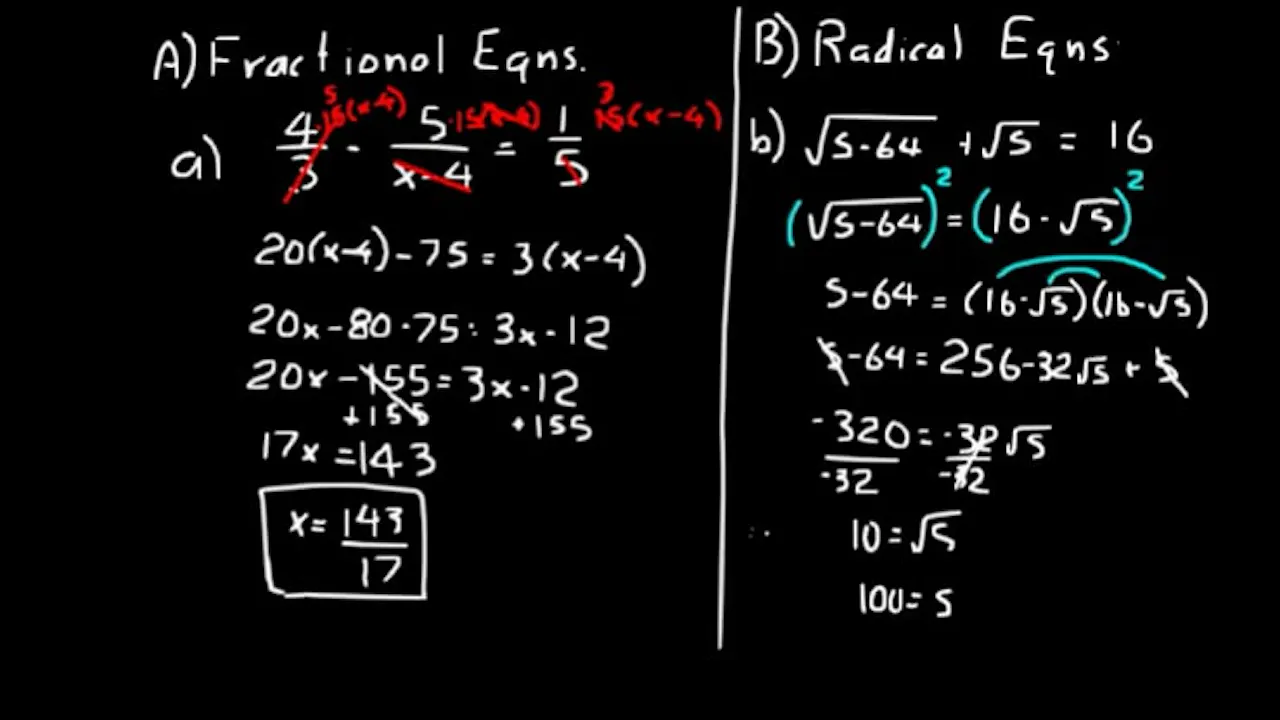 A) Fractional Eqns.
a) 4/3 · 15(x-4) 5 - 5/(x-4) · 15(x-4) = 1/5 15(x-4) 3
20(x-4) - 75 = 3(x-4)
20x - 80 - 75 = 3x - 12
20x - 155 = 3x - 12
+155 +155
17x = 143
x = 143/17
B) Radical Eqns.
b) √(s-64) + √s = 16
(√(s-64))² = (16 - √s)²
s - 64 = (16 - √s)(16 - √s)
s - 64 = 256 - 32√s + s
-320 = -32√s
-32 -32
10 = √s
100 = s